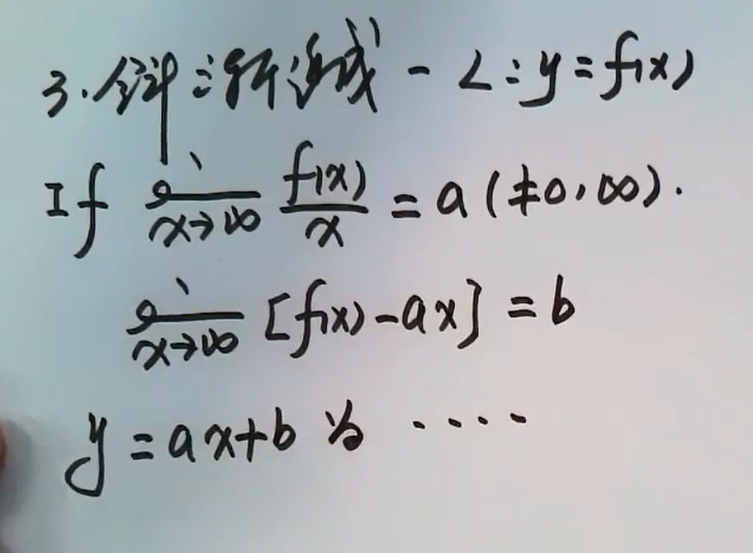 3. 斜渐近线 - L: y = f(x)
If lim x→∞ f(x)/x = a (≠0, ∞).
lim x→∞ [f(x) - ax] = b
y = ax + b 为 ····